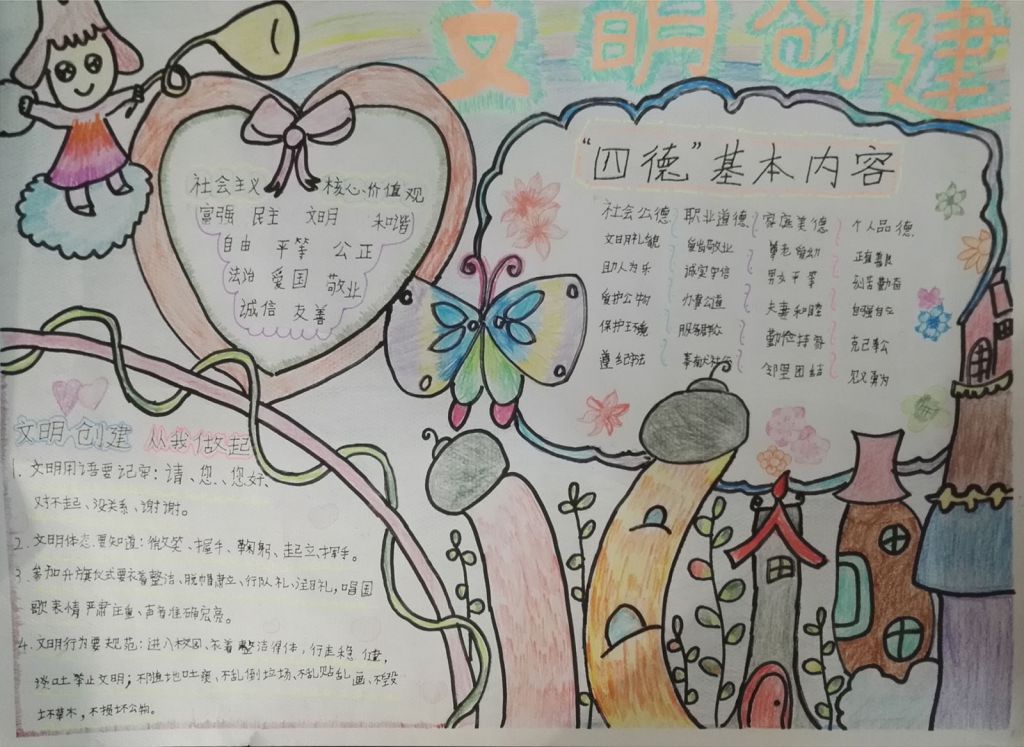 文明创建
社会主义核心价值观
富强 民主 文明 和谐
自由 平等 公正
法治 爱国 敬业
诚信 友善
“四德”基本内容
社会公德 职业道德 家庭美德 个人品德
文明礼貌 爱岗敬业 尊老爱幼 正直善良
助人为乐 诚实守信 男女平等 刻苦勤奋
爱护公物 办事公道 夫妻和睦 自强自立
保护环境 服务群众 勤俭持家 克己奉公
遵纪守法 奉献社会 邻里团结 见义勇为
文明创建 从我做起
1. 文明用语要记牢：请、您、您好、
对不起、没关系、谢谢。
2. 文明体态要知道：微笑、握手、鞠躬、起立、挥手。
3. 参加升旗仪式要衣着整洁、脱帽肃立、行队礼、注目礼，唱国
歌表情严肃庄重、声音准确宏亮。
4. 文明行为要规范：进入校园、衣着整洁得体，行走稳健，
谈吐举止文明；不随地吐痰、不乱倒垃圾、不乱贴乱画、不毁
坏草木，不损坏公物。